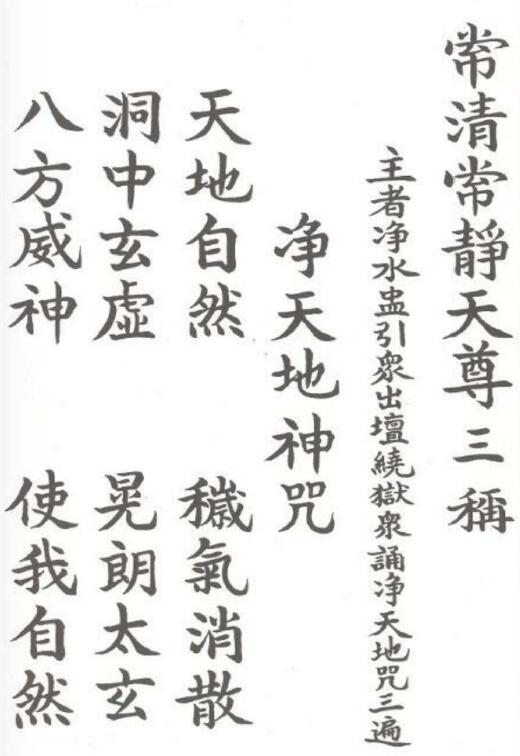 常清常靜天尊三稱
主者净水盂引衆出壇繞獄衆誦净天地咒三遍
净天地神咒
天地自然　穢氣消散
洞中玄虛　晃朗太玄
八方威神　使我自然